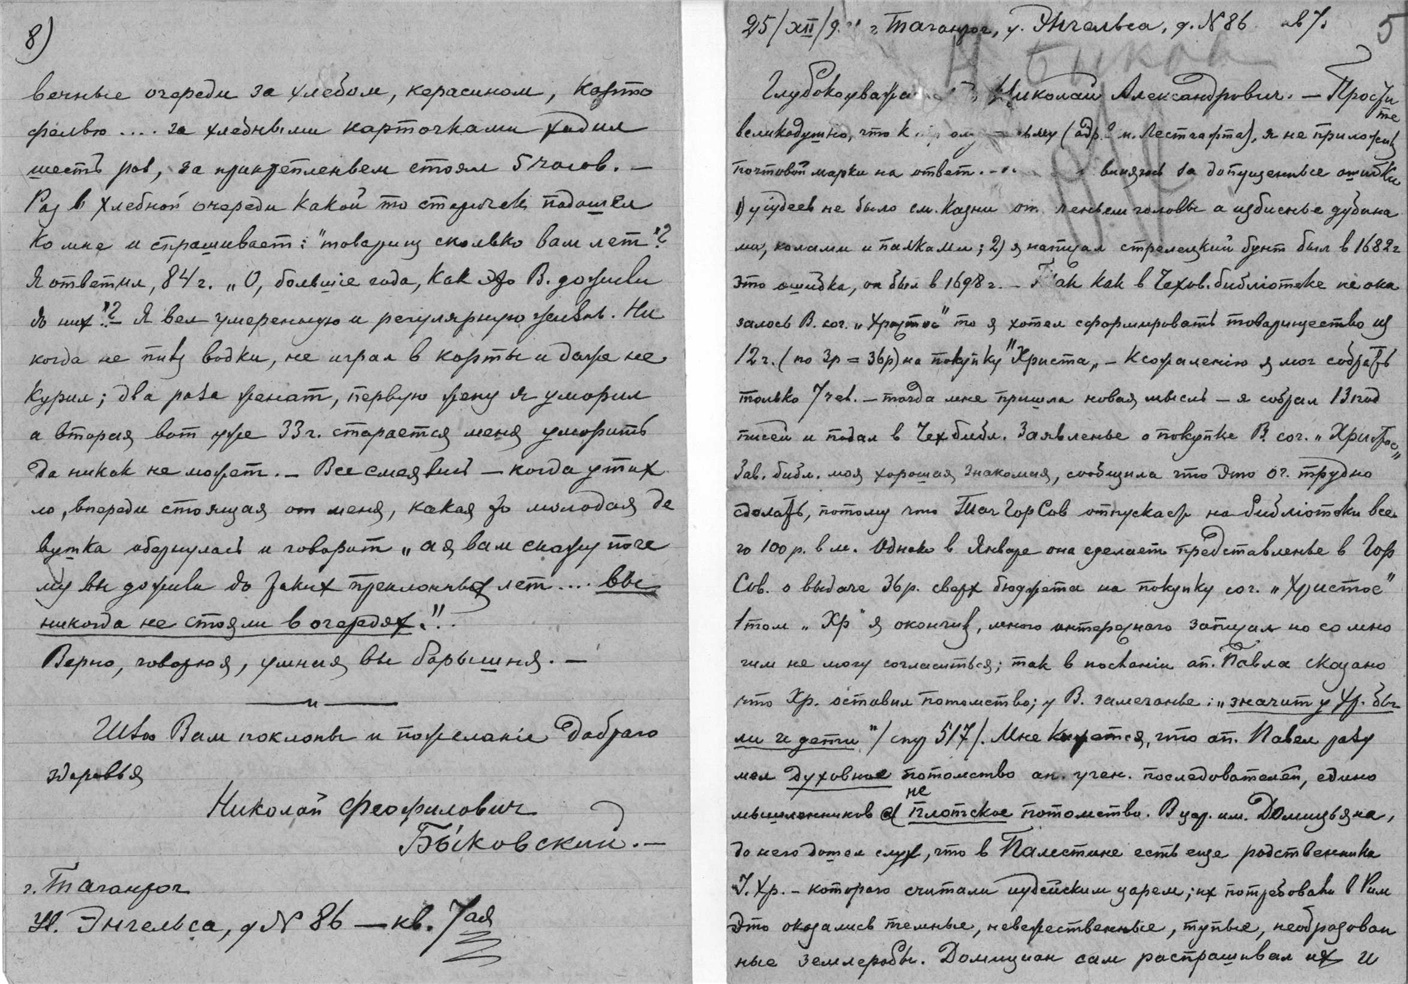 8)
вечные очереди за хлебом, керасином, карто
фелью .... за хлебными карточками ходил
шесть раз, за прикрепленьем стоял 5 часов. —
Раз в хлебной очереди какой то старичек подошел
ко мне и спрашивает: "товарищ сколько вам лет"?
Я ответил, 84 г. „О, большіе года, как это В. дожили
до них"? Я вел умеренную и регулярную жизнь. Ни
когда не пил водки, не играл в карты и даже не
курил; два раза женат, первую жену я уморил
а вторая вот уже 33 г. старается меня уморить
да никак не может. — Все смеялись — когда утих
ло, впереди стоящая от меня, какая то молодая де
вушка обернулась и говорит „а я вам скажу поче
му вы дожили до таких преклонных лет... вы
никогда не стояли в очередях."!
Верно, говорю я, умная вы барышня. —
Шлю Вам поклоны и пожеланіе доброго
здоровья
Николай Феофилович
Быковский. —
г. Таганрог
Ул. Энгельса, д N 86 — кв. 7ая
25/XII/9 г Таганрог, у. Энгельса, д. N 86 кв 7.
5
Быков
Глубокоуважа Николай Александрович. — Прости
те
великодушно, что к (адр? и. Лесгафта), я не приложил
почтовой марки на ответ. винюсь за допущенные ошибки
1) у іудеев не было см. казни от головы а избиенье дубина
ми, колами и палками; 2) я написал стрелецкий бунт был в 1682 г
это ошибка, он был в 1698 г. — Так как в Чехов. библіотеке не ока
залось В. соч. „Христос" то я хотел сформировать товарищество из
12 ч. (по 3р = 36р) на покупку "Христа„ — К сожаленію я мог собрать
только 7 чел. — тогда мне пришла новая мысль — я собрал 13 под
писей и подал в Чех библ. Заявленье о покупке В. соч. „Христос„
Зав. библ. моя хорошая знакомая, сообщила что это оч. трудно
сделать, потому что ТагГорСов отпускает на библіотеки все
го 100 р. в м. Однако в Январе она сделает представленье в Гор
Сов. о выдаче 36р. сверх бюджета на покупку соч. „Христос"
1 том „Хр" я окончил, много интересного записал но со мно
гим не могу согласиться; так в посланіи ап. Павла сказано
что Хр. оставил потомство; у В. замечанье: „значит у Хр. бы
ли и дети"/ стр 517/. Мне кажется, что ап. Павел разу
мел духовное потомство ан. учен. последователей, едино
мышленников а не плотское потомство. В цар. им. Домицьяна,
до него дошел слух, что в Палестине есть еще родственники
І. Хр. — которого считали иудейским царем; их потребовали в Рим
Это оказались темные, невежественные, тупые, необразован
ные землеробы. Домициан сам распрашивал их и